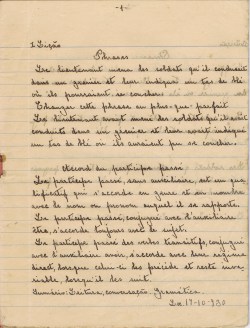 -1-
I Lição
Phrases
Le lieutenant mena des soldats qu'il conduisit
dans un grenier et leur indiqua un tas de blé
où ils pourraient se coucher.
Changer cette phrase au plus-que-parfait
Le lieutenant avait mené des soldats qu'il avait
conduits dans un grenier et leur avait indiqué
un tas de blé où ils auraient pu se coucher.
Accord du participe passé
Le participe passé, sans auxiliaire, est un qua-
lificatif qui s'accorde en genre et en nombre
avec le nom ou pronom auquel il se rapporte.
Le participe passé, conjugué avec l'auxiliaire
être, s'accorde toujours avec le sujet.
Le participe passé des verbes transitifs, conjugué
avec l'auxiliaire avoir, s'accorde avec leur régime
direct, lorsque celui-ci les précède et reste inva-
riable, lorsqu'il les suit.
Sumário: Leitura, conversação. Gramática.
17-10-930